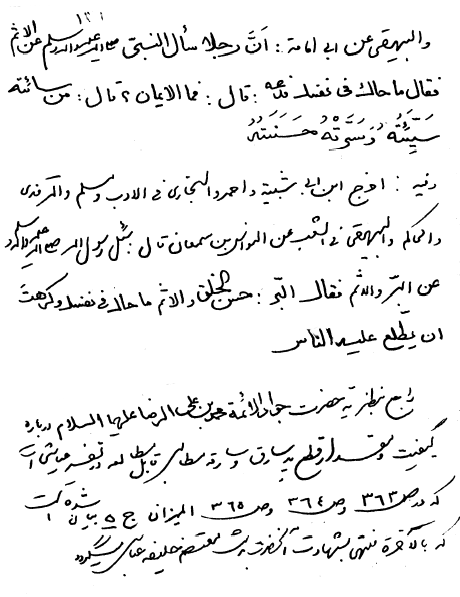 ١٢١
والبیهقی عن ابی امامة : انّ رجلا سأل النبی صلی الله علیه وآله وسلم عن الاثم
فقال ما حاك فی نفسك فدعه : قال : فما الایمان ؟ قال : من سائته
سَیِّئَتُه وَسَرَّتْهُ حَسَنَتُهُ
وفیه : اخرج ابن ابی شیبة واحمد والبخاری فی الادب ومسلم والترمذی
والحاکم والبیهقی فی الشعب عن النواس بن سمعان قال : سئل رسول الله صلی الله علیه وآله وسلم
عن البرّ والاثم فقال البّر : حسن الخلق والاثم ما حاك فی نفسك وکرهت
ان یطّلع علیه الناس
راجع بنظریهٔ حضرت جواد الائمة محمد بن علی الرضا علیهما السلام درباره
کیفیت و مقدار قطع ید سارق و سارقه مطالبی قابل مطالعه در تفسیر عیاشی است
که در ص ٣٦٣ وص ٣٦٤ وص ٣٦٥ المیزان ج ٥ بیان شده است
که بالاخرة منتهی بشهادت آنحضرت بدست معتصم خلیفه عباسی میگردد